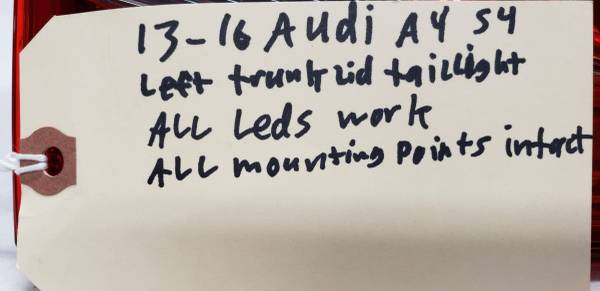 13-16 Audi A4 S4
Left trunk lid taillight
ALL Leds work
ALL mounting Points intact